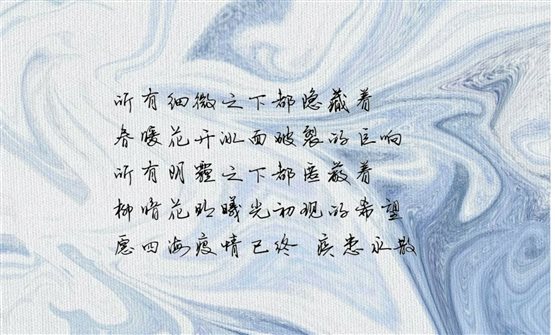 所有细微之下都隐藏着
春暖花开冰面破裂的巨响
所有阴霾之下都匿蔽着
柳暗花明曦光初现的希望
愿四海疫情已终 疾患永散